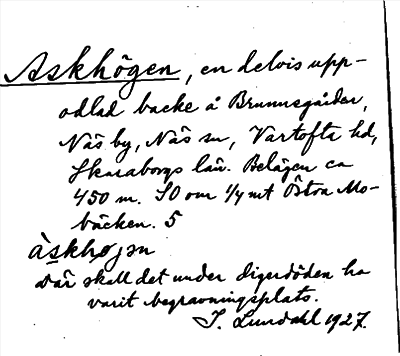 Askhögen, en delvis upp-
odlad backe å Brunnsgården,
Näs by, Näs sn, Vartofta hd,
Skaraborgs län. Belägen ca
450 m. SO om Östra Mo-
bäcken. 5
àskhøjən
Där skall det under digerdöden ha
varit begravningsplats.
J. Lundahl 1927.